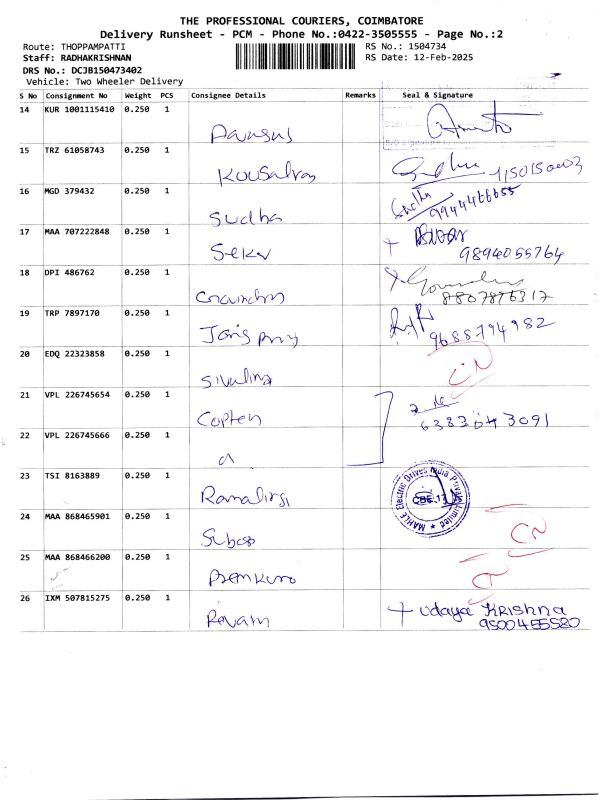 THE PROFESSIONAL COURIERS, COIMBATORE
Delivery Runsheet - PCM - Phone No.:0422-3505555 - Page No.:2
Route: THOPPAMPATTI
RS No.: 1504734
Staff: RADHAKRISHNAN
RS Date: 12-Feb-2025
DRS No.: DCJB150473402
Vehicle: Two Wheeler Delivery
S No Consignment No Weight PCS Consignee Details Remarks Seal & Signature
14 KUR 1001115410 0.250 1
15 TRZ 61058743 0.250 1
Kousalya
16 MGD 379432 0.250 1
Sudha
9944466655
17 MAA 707222848 0.250 1
Sekar
9894055764
18 DPI 486762 0.250 1
8807876317
19 TRP 7897170 0.250 1
9688794982
20 EDQ 22323858 0.250 1
CN
21 VPL 226745654 0.250 1
Copten
22 VPL 226745666 0.250 1
23 TSI 8163889 0.250 1
MAHLE Electric Drives India Private Limited
24 MAA 868465901 0.250 1
CN
25 MAA 868466200 0.250 1
26 IXM 507815275 0.250 1
Udaya Krishna
9500455520